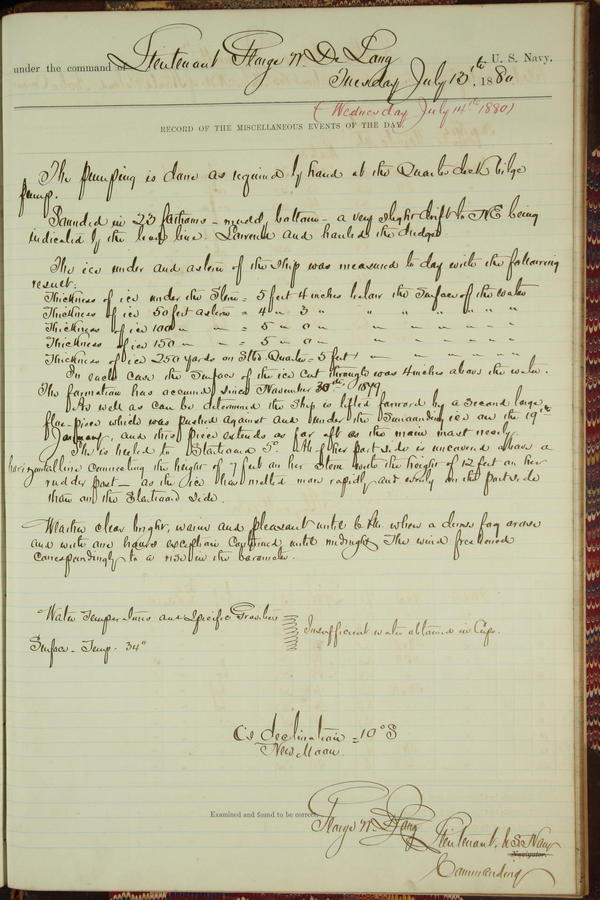 under the command of Lieutenant George W De Long U. S. Navy,
Tuesday July 13th, 1880
(Wednesday July 14th 1880)
RECORD OF THE MISCELLANEOUS EVENTS OF THE DAY.
The pumping is done as required by hand at the Quarter deck bilge
pump.
Sounded in 23 fathoms - mud bottom - a very slight drift to NE being
indicated by the lead line. Lowered and hauled the dredge
The ice under and astern of the ship was measured to day with the following
result:
Thickness of ice under the Stem = 5 feet 4 inches below the surface of the water
Thickness of ice 50 feet astern = 4 " 3 " " " " " " "
Thickness of ice 100 " = 5 " 0 "
Thickness of ice 150 " = 5 " 0 "
Thickness of ice 250 yards on Stbd Quarter = 5 feet
In each case the surface of the ice cut through was 4 inches above the water.
The formation has accrued since November 30th, 1879
As well as can be determined the ship is lifted forward by a second large
floe piece which was pushed against and under the surrounding ice on the 19th
January, and this piece extends as far aft as the main mast nearly.
She is heeled to Starboard 5°. All of her port side is uncovered above a
horizontal line connecting the height of 7 feet on her Stem with the height of 12 feet on her
rudder post - as the ice has melted more rapidly and evenly on the port side
than on the Starboard side.
Weather clear bright, warm and pleasant until 6 P.M. when a dense fog arose
and with one hours exception continued until midnight. The wind freshened
correspondingly to a rise in the barometer.
Water Temperatures and Specific Gravities
Insufficient water obtained in Cups.
Surface - Temp - 34°
C's declination = 10° S
New Moon.
Examined and found to be correct.
George W. De Long Lieutenant. U.S. Navy
Navigator.
Commanding